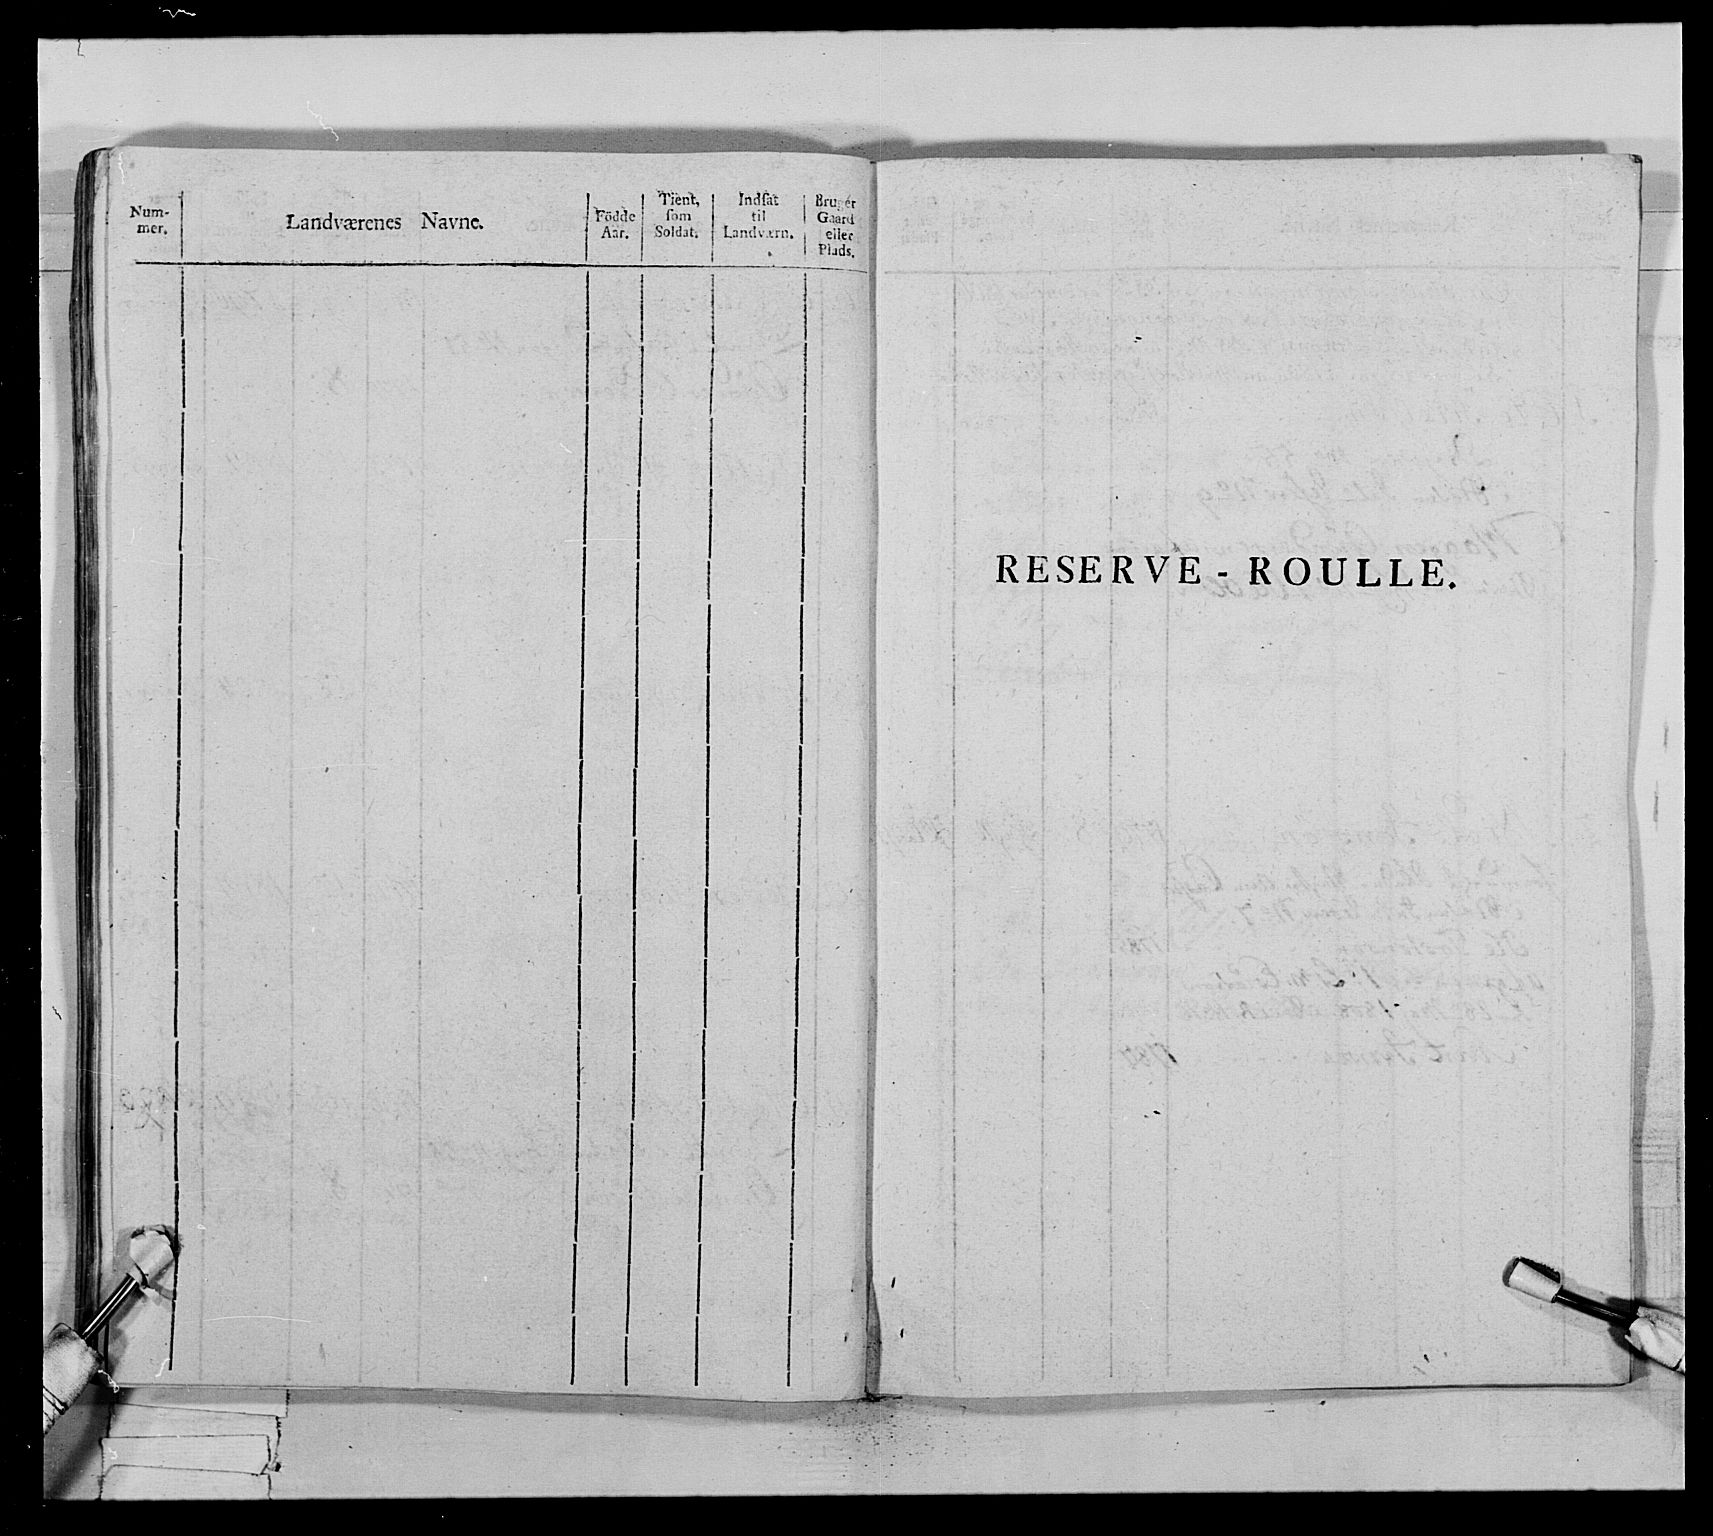 Num-
mer.
Landværenes Navne.
Födde
Aar.
Tient,
som
Soldat.
Indsat
til
Landværn.
Bruger
Gaard
eller
Plads.
RESERVE - ROULLE.